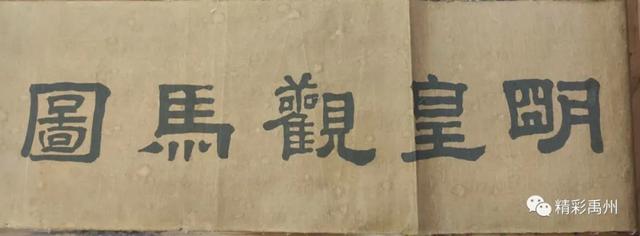 明皇觀馬圖
精彩禹州